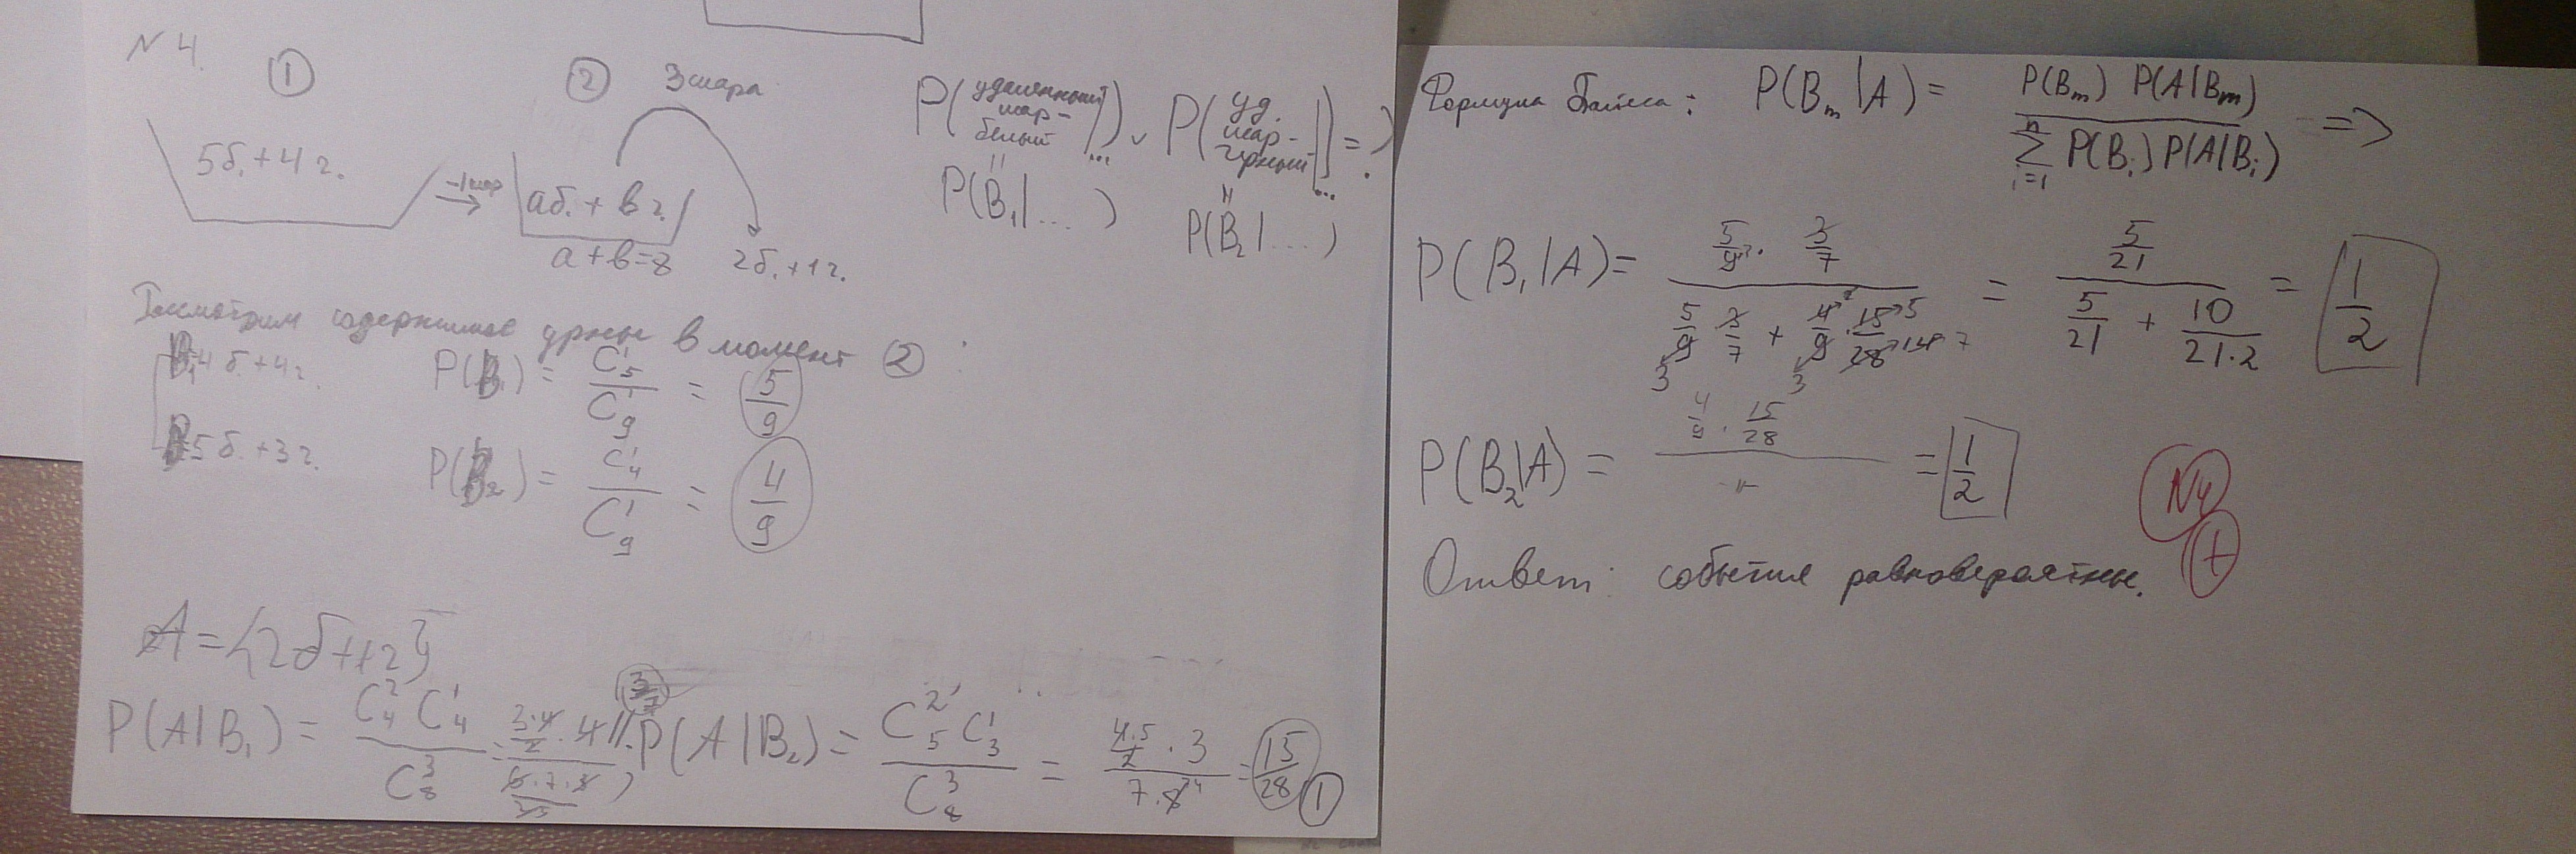 N 4.
① ② 3 шара
5б. + 4ч.
-1 шар →
аб. + вч.
а+в=8
2б. + 1ч.
P(удаленный шар - белый | ...) ∨ P(уд. шар - черный | ...) = ?
P(B₁ | ... ) P(B₂ | ... )
Посмотрим содержимое урны в момент ② :
B₁ 4б. + 4ч. P(B₁) = C₅¹ / C₉¹ = 5/9
B₂ 5б. + 3ч. P(B₂) = C₄¹ / C₉¹ = 4/9
A = {2б + 1ч}
P(A|B₁) = C₄² C₄¹ / C₈³ = 3·4/2 · 4 // 6·7·8 / 2·3 3/7
P(A|B₂) = C₅² C₃¹ / C₈³ = 4·5/2 · 3 / 7·8 = 15/28 ①
Формула Байеса : P(Bₘ|A) = P(Bₘ) P(A|Bₘ) / Σᵢ₌₁ⁿ P(Bᵢ) P(A|Bᵢ) =>
P(B₁|A) = 5/9 · 3/7 / 5/9 · 3/7 + 4/9 · 15/28 = 5/21 / 5/21 + 10/21·2 = 1/2
P(B₂|A) = 4/9 · 15/28 / -"- = 1/2
N4
+
Ответ: события равновероятные.